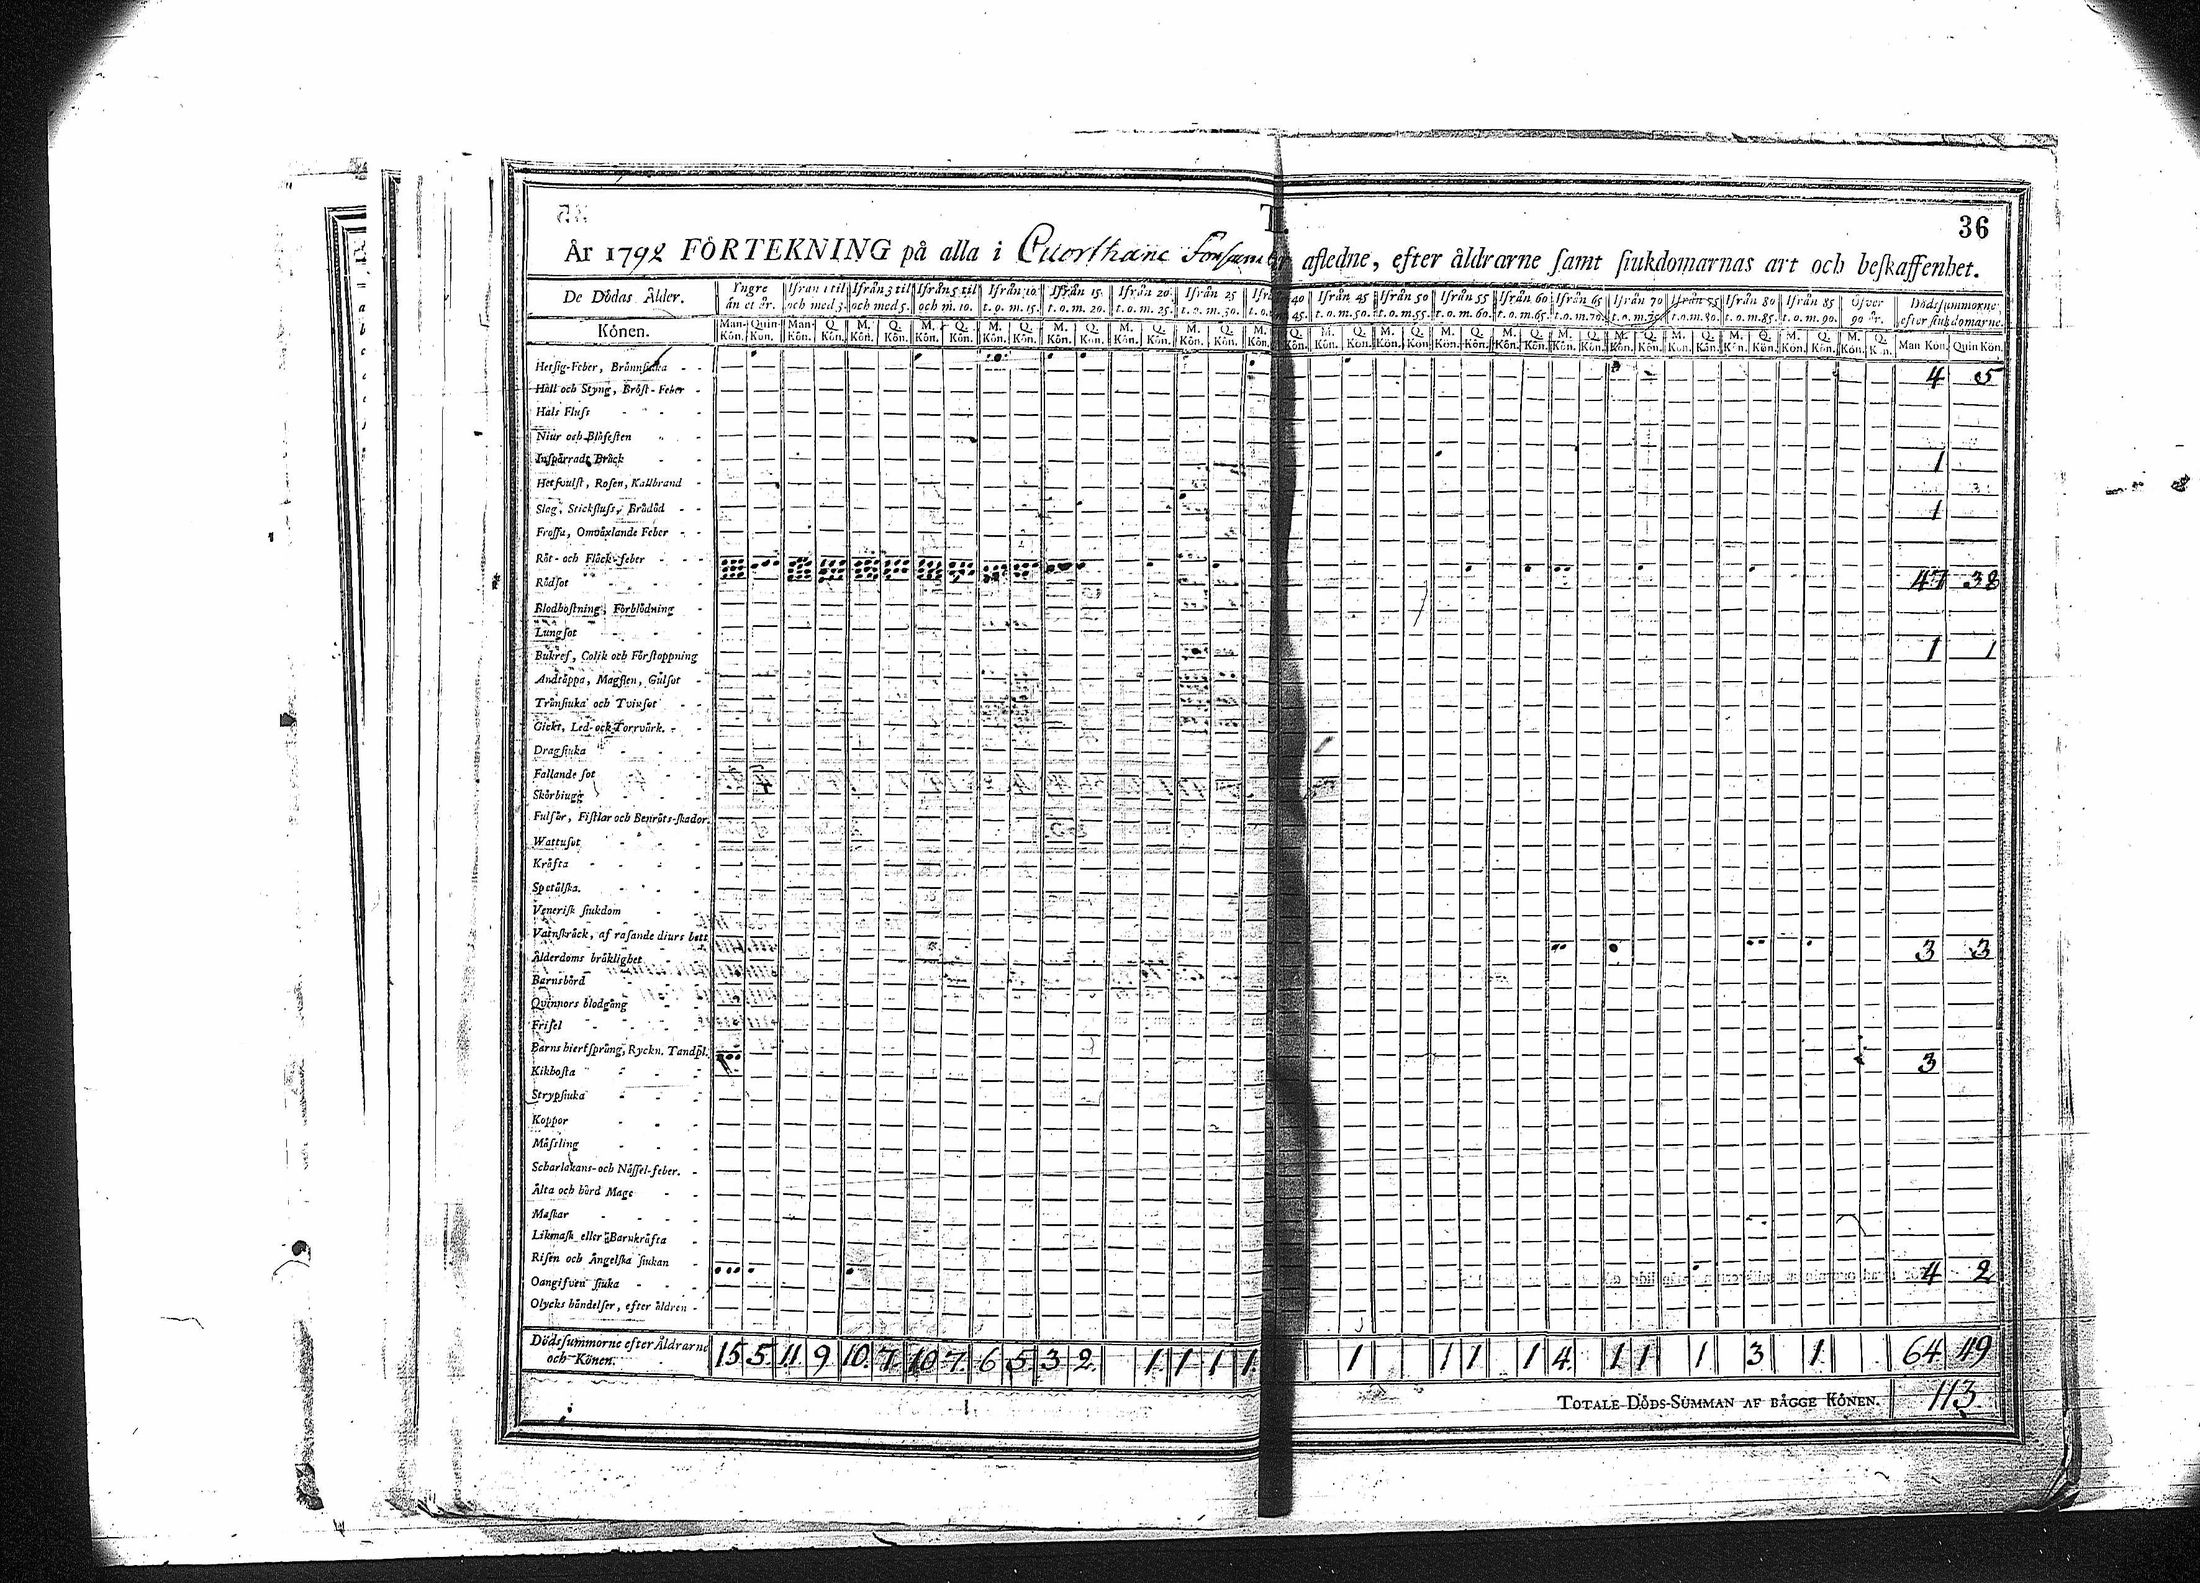 36
T.
År 1792 FÖRTEKNING på alla i Cuorthane Församling afledne, efter åldrarne samt siukdomarnas art och beskaffenhet.
De Dödas Ålder. Yngre än et år. Ifrån 1 til och med 3. Ifrån 3 til och med 5. Ifrån 5 til och m. 10. Ifrån 10. t. o. m. 15. Ifrån 15. t. o. m. 20. Ifrån 20. t. o. m. 25. Ifrån 25 t. o. m. 30. 40 45. Ifrån 45 t. o. m. 50. Ifrån 50 t. o. m. 55. Ifrån 55 t. o. m. 60. Ifrån 60 t. o. m. 65. Ifrån 65 t. o. m. 70. Ifrån 70 t. o. m. 75. Ifrån 75 t. o. m. 80. Ifrån 80 t. o. m. 85. Ifrån 85 t. o. m. 90. Öfver 90 år. Dödssummorne, efter siukdomarne.
Könen. Man-Kön. Quin-Kön. Man-Kön. Q. Kön. M. Kön. Q. Kön. M. Kön. Q. Kön. M. Kön. Q. Kön. M. Kön. Q. Kön. M. Kön. Q. Kön. M. Kön. Q. Kön. M. Kön. Q. Kön. M. Kön. Q. Kön. M. Kön. Q. Kön. M. Kön. Q. Kön. M. Kön. Q. Kön. M. Kön. Q. Kön. M. Kön. Q. Kön. M. Kön. Q. Kön. M. Kön. Q. Kön. M. Kön. Q. Kön. M. Kön. Q. Kön. Man Kön. Quin Kön.
Hetsig-Feber, Brännsiuka 4 5
Håll och Styng, Bröst-Feber
Hals Fluss
Niur och Blåsesten
Inspärradt Bråck 1
Hetsvulst, Rosen, Kallbrand
Slag, Stickfluss, Brådöd 1
Frossa, Omväxlande Feber
Röt- och Fläck-feber
Rödsot 47 38
Blodhostning, Förblödning
Lungsot
Bukref, Colik och Förstoppning 1 1
Andtäppa, Magsten, Gulsot
Trånsiuka och Tvinsot
Gickt, Led- och Torrvärk.
Dragsiuka
Fallande sot
Skörbiugg
Fulsår, Fistlar och Benröts-skador.
Wattusot
Kräfta
Spetälska.
Venerisk siukdom
Vatnskräck, af rasande diurs bett
Ålderdoms bräklighet 3 3
Barnsbörd
Qvinnors blodgång
Frisel
Barns hiertsprång, Ryckn. Tandpl. 3
Kikhosta
Strypsiuka
Koppor
Mässling
Scharlakans- och Nässel-feber.
Älta och hård Mage
Maskar
Likmask eller Barnkräfta
Risen och Ängelska siukan
Oangifven siuka 4 2
Olycks händelser, efter äldren
Dödssummorne efter Åldrarne och Könen. 15 5 11 9 10. 7. 10 7. 6 5 3 2. 1. 1 1 1. 1 1 1 1 4. 1 1 1 3 1. 64 49
TOTALE DÖDS-SUMMAN AF BÄGGE KÖNEN. 113.